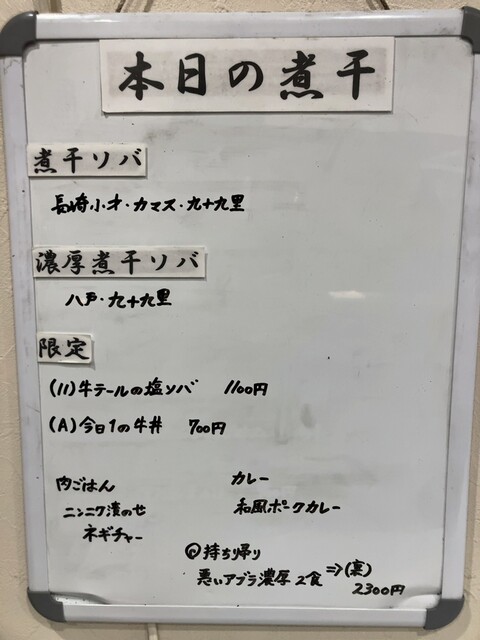 本日の煮干
煮干ソバ
長崎小才・カマス・九十九里
濃厚煮干ソバ
八戸・九十九里
限定
(11)牛テールの塩ソバ 1100円
(A)今日1の牛丼 700円
肉ごはん
ニンニク漬のせ
ネギチャー
カレー
和風ポークカレー
◎持ち帰り
悪いアブラ濃厚2食⇒(裏)
2300円